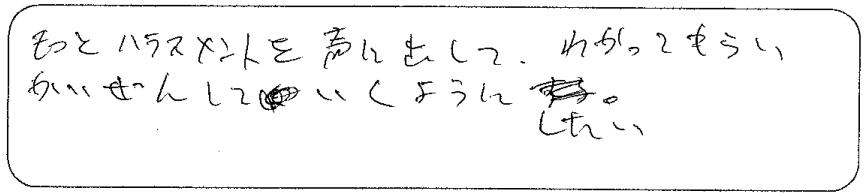 もっとハラスメントを声に出して、わかってもらい
かいぜんしていくように
したい。